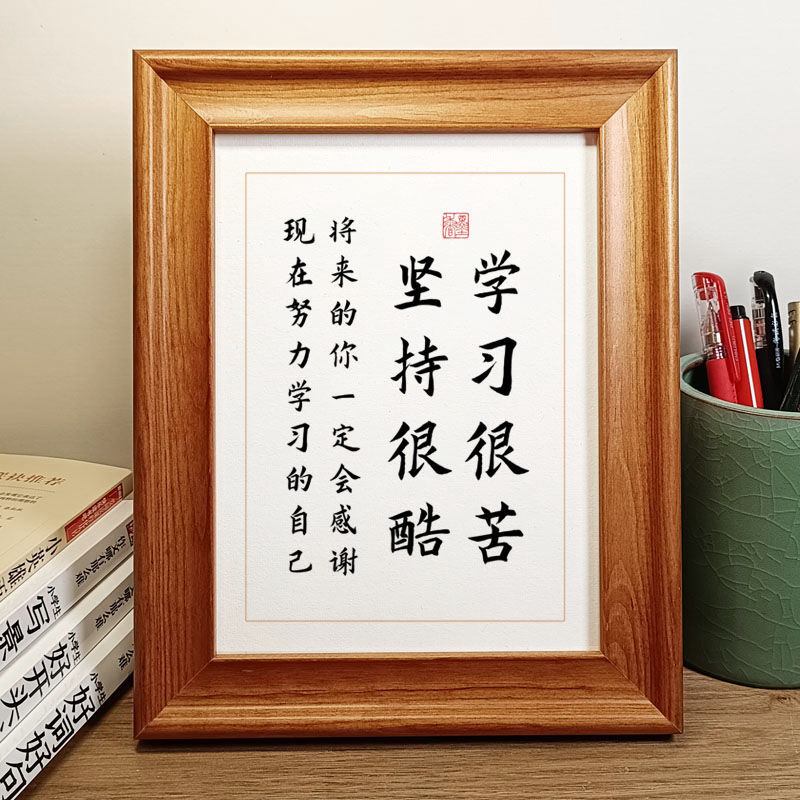 学习很苦
坚持很酷
将来的你一定会感谢
现在努力学习的自己
小英雄
小学生
写景
小学生
好开头
小学生
好词好句